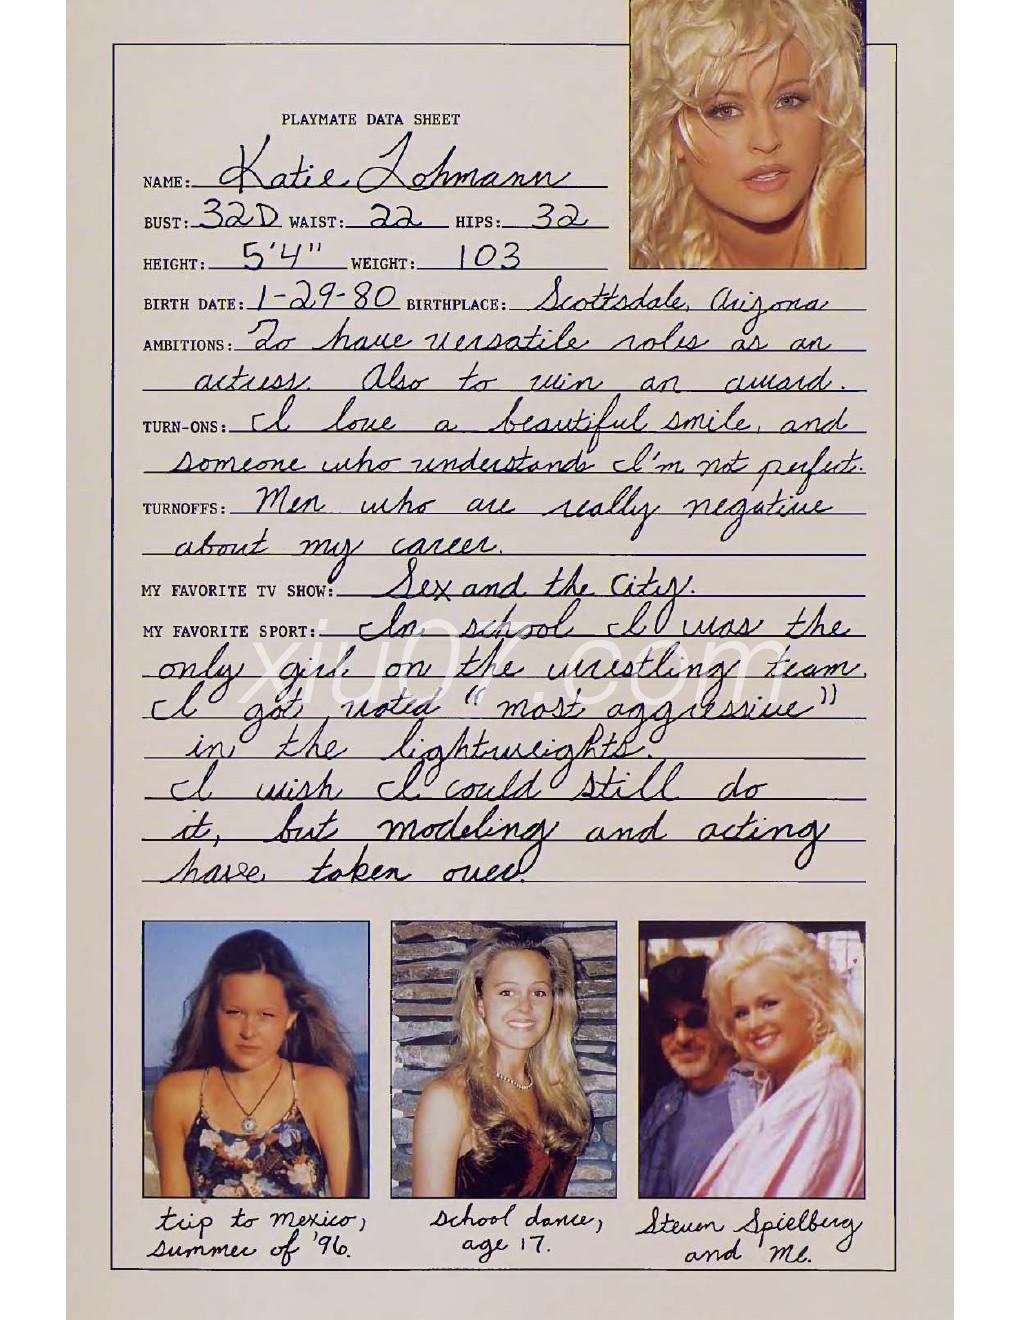 PLAYMATE DATA SHEET
NAME: Katie Lohmann
BUST: 32D WAIST: 22 HIPS: 32
HEIGHT: 5'4" WEIGHT: 103
BIRTH DATE: 1-29-80 BIRTHPLACE: Scottsdale, Arizona
AMBITIONS: To have versatile roles as an
actress. Also to win an award.
TURN-ONS: I love a beautiful smile, and
someone who understands I'm not perfect.
TURNOFFS: Men who are really negative
about my career.
MY FAVORITE TV SHOW: Sex and the City.
MY FAVORITE SPORT: In school I was the
only girl on the wrestling team.
xiu07.com
I got voted "most aggressive"
in the lightweights.
I wish I could still do
it, but modeling and acting
have taken over.
trip to Mexico,
summer of '96.
school dance,
age 17.
Steven Spielberg
and me.